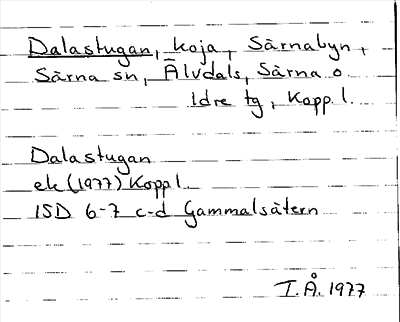 Dalastugan, koja, Särnabyn,
Särna sn, Älvdals, Särna o
Idre tg, Kopp l.
Dalastugan
ek (1977) Kopp l.
15D 6-7 c-d Gammalsätern
I.Å. 1977